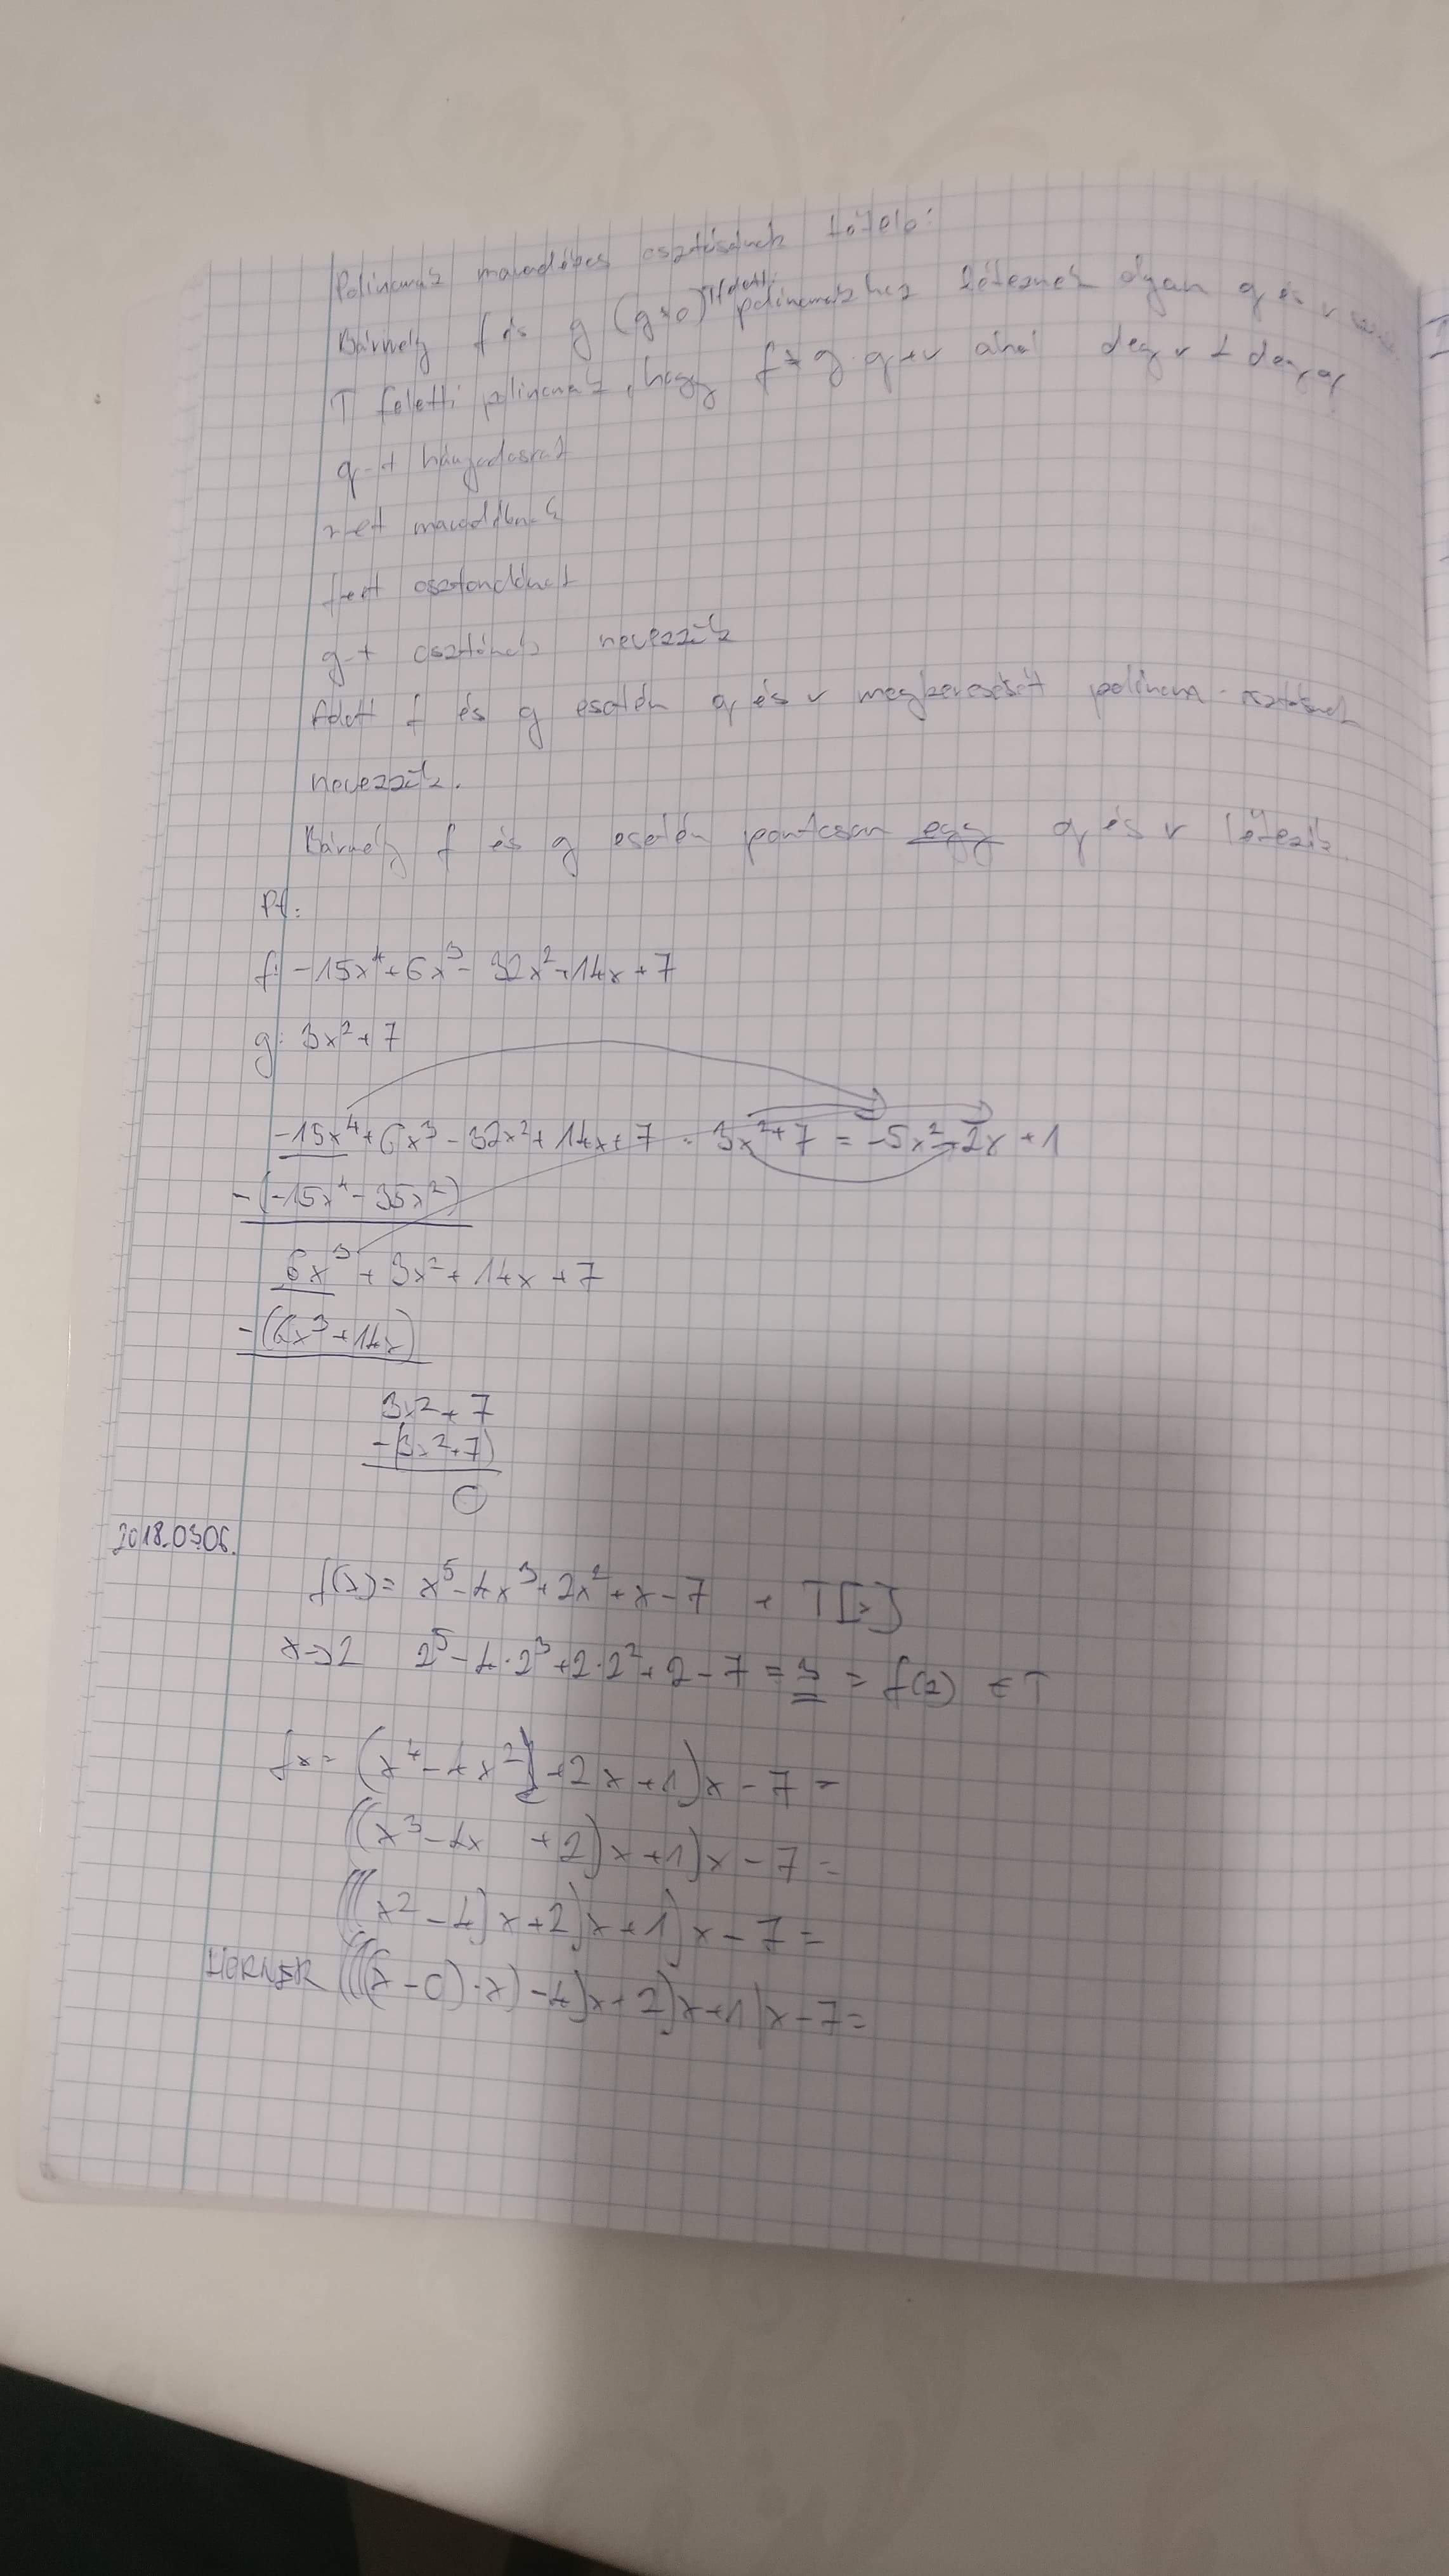 Polinomok maradékos osztásának tétele:
Bármely f és g (g≠0) T feletti polinomokhoz léteznek olyan q és r
T feletti polinomok, hogy f = g·q+r ahol deg r < deg g
q-t hányadosnak
r-et maradéknak
f-et osztandónak
g-t osztónak nevezzük
Adott f és g esetén q és r megkeresését polinom-osztásnak
nevezzük.
Bármely f és g esetén pontosan egy q és r létezik.
Pl:
f: -15x⁴+6x³-32x²+14x+7
g: 3x²+7
-15x⁴+6x³-32x²+14x+7 : 3x²+7 = -5x²+2x+1
-(-15x⁴-35x²)
6x³+3x²+14x+7
-(6x³+14x)
3x²+7
-(3x²+7)
0
2018.03.06.
f(x)= x⁵-4x³+2x²+x-7 ∈ T[x]
x→2 2⁵-4·2³+2·2²+2-7=3=f(2) ∈T
fx= (x⁴-4x²+2x+1)x-7=
((x³-4x +2)x+1)x-7=
(((x²-4)x+2)x+1)x-7=
HORNER ((((x-0)·x)-4)x+2)x+1)x-7=